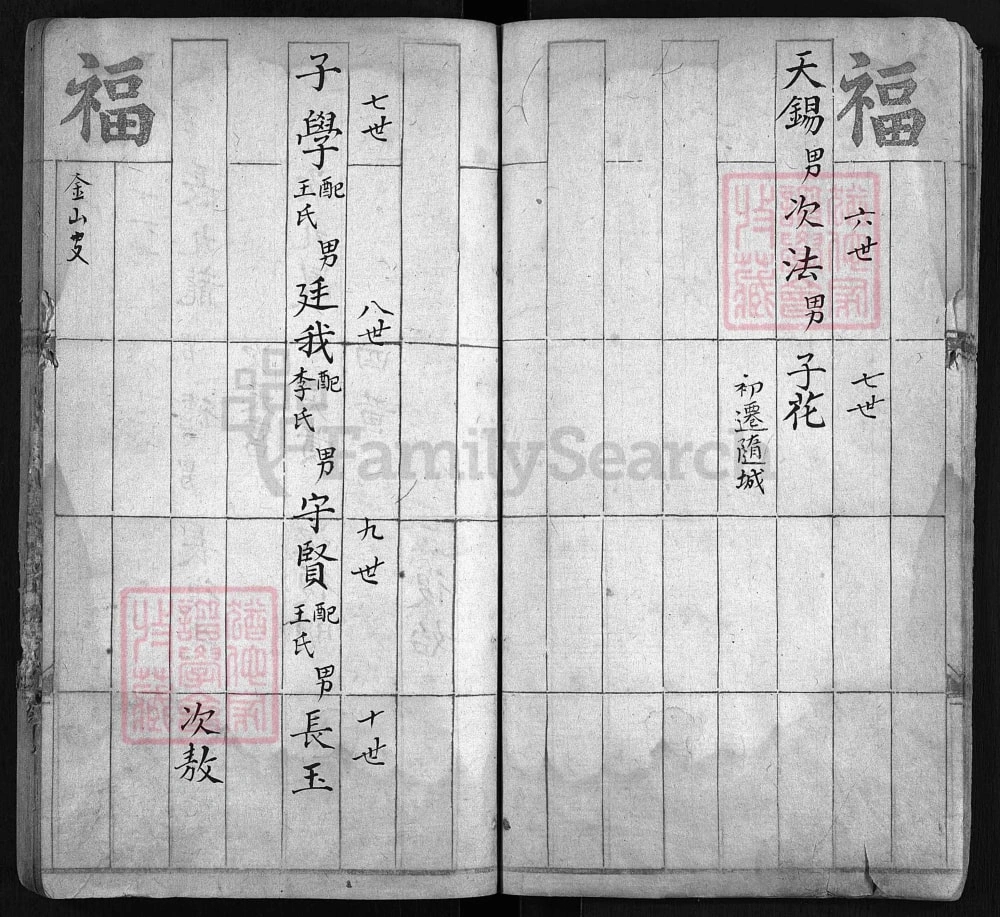 福
六世
七世
天錫 男 次法 男 子花
初遷隨城
七世
八世
九世
十世
子學 配王氏 男 廷我 配李氏 男 守賢 配王氏 男 長玉
次敖
福
金山
FamilySearch